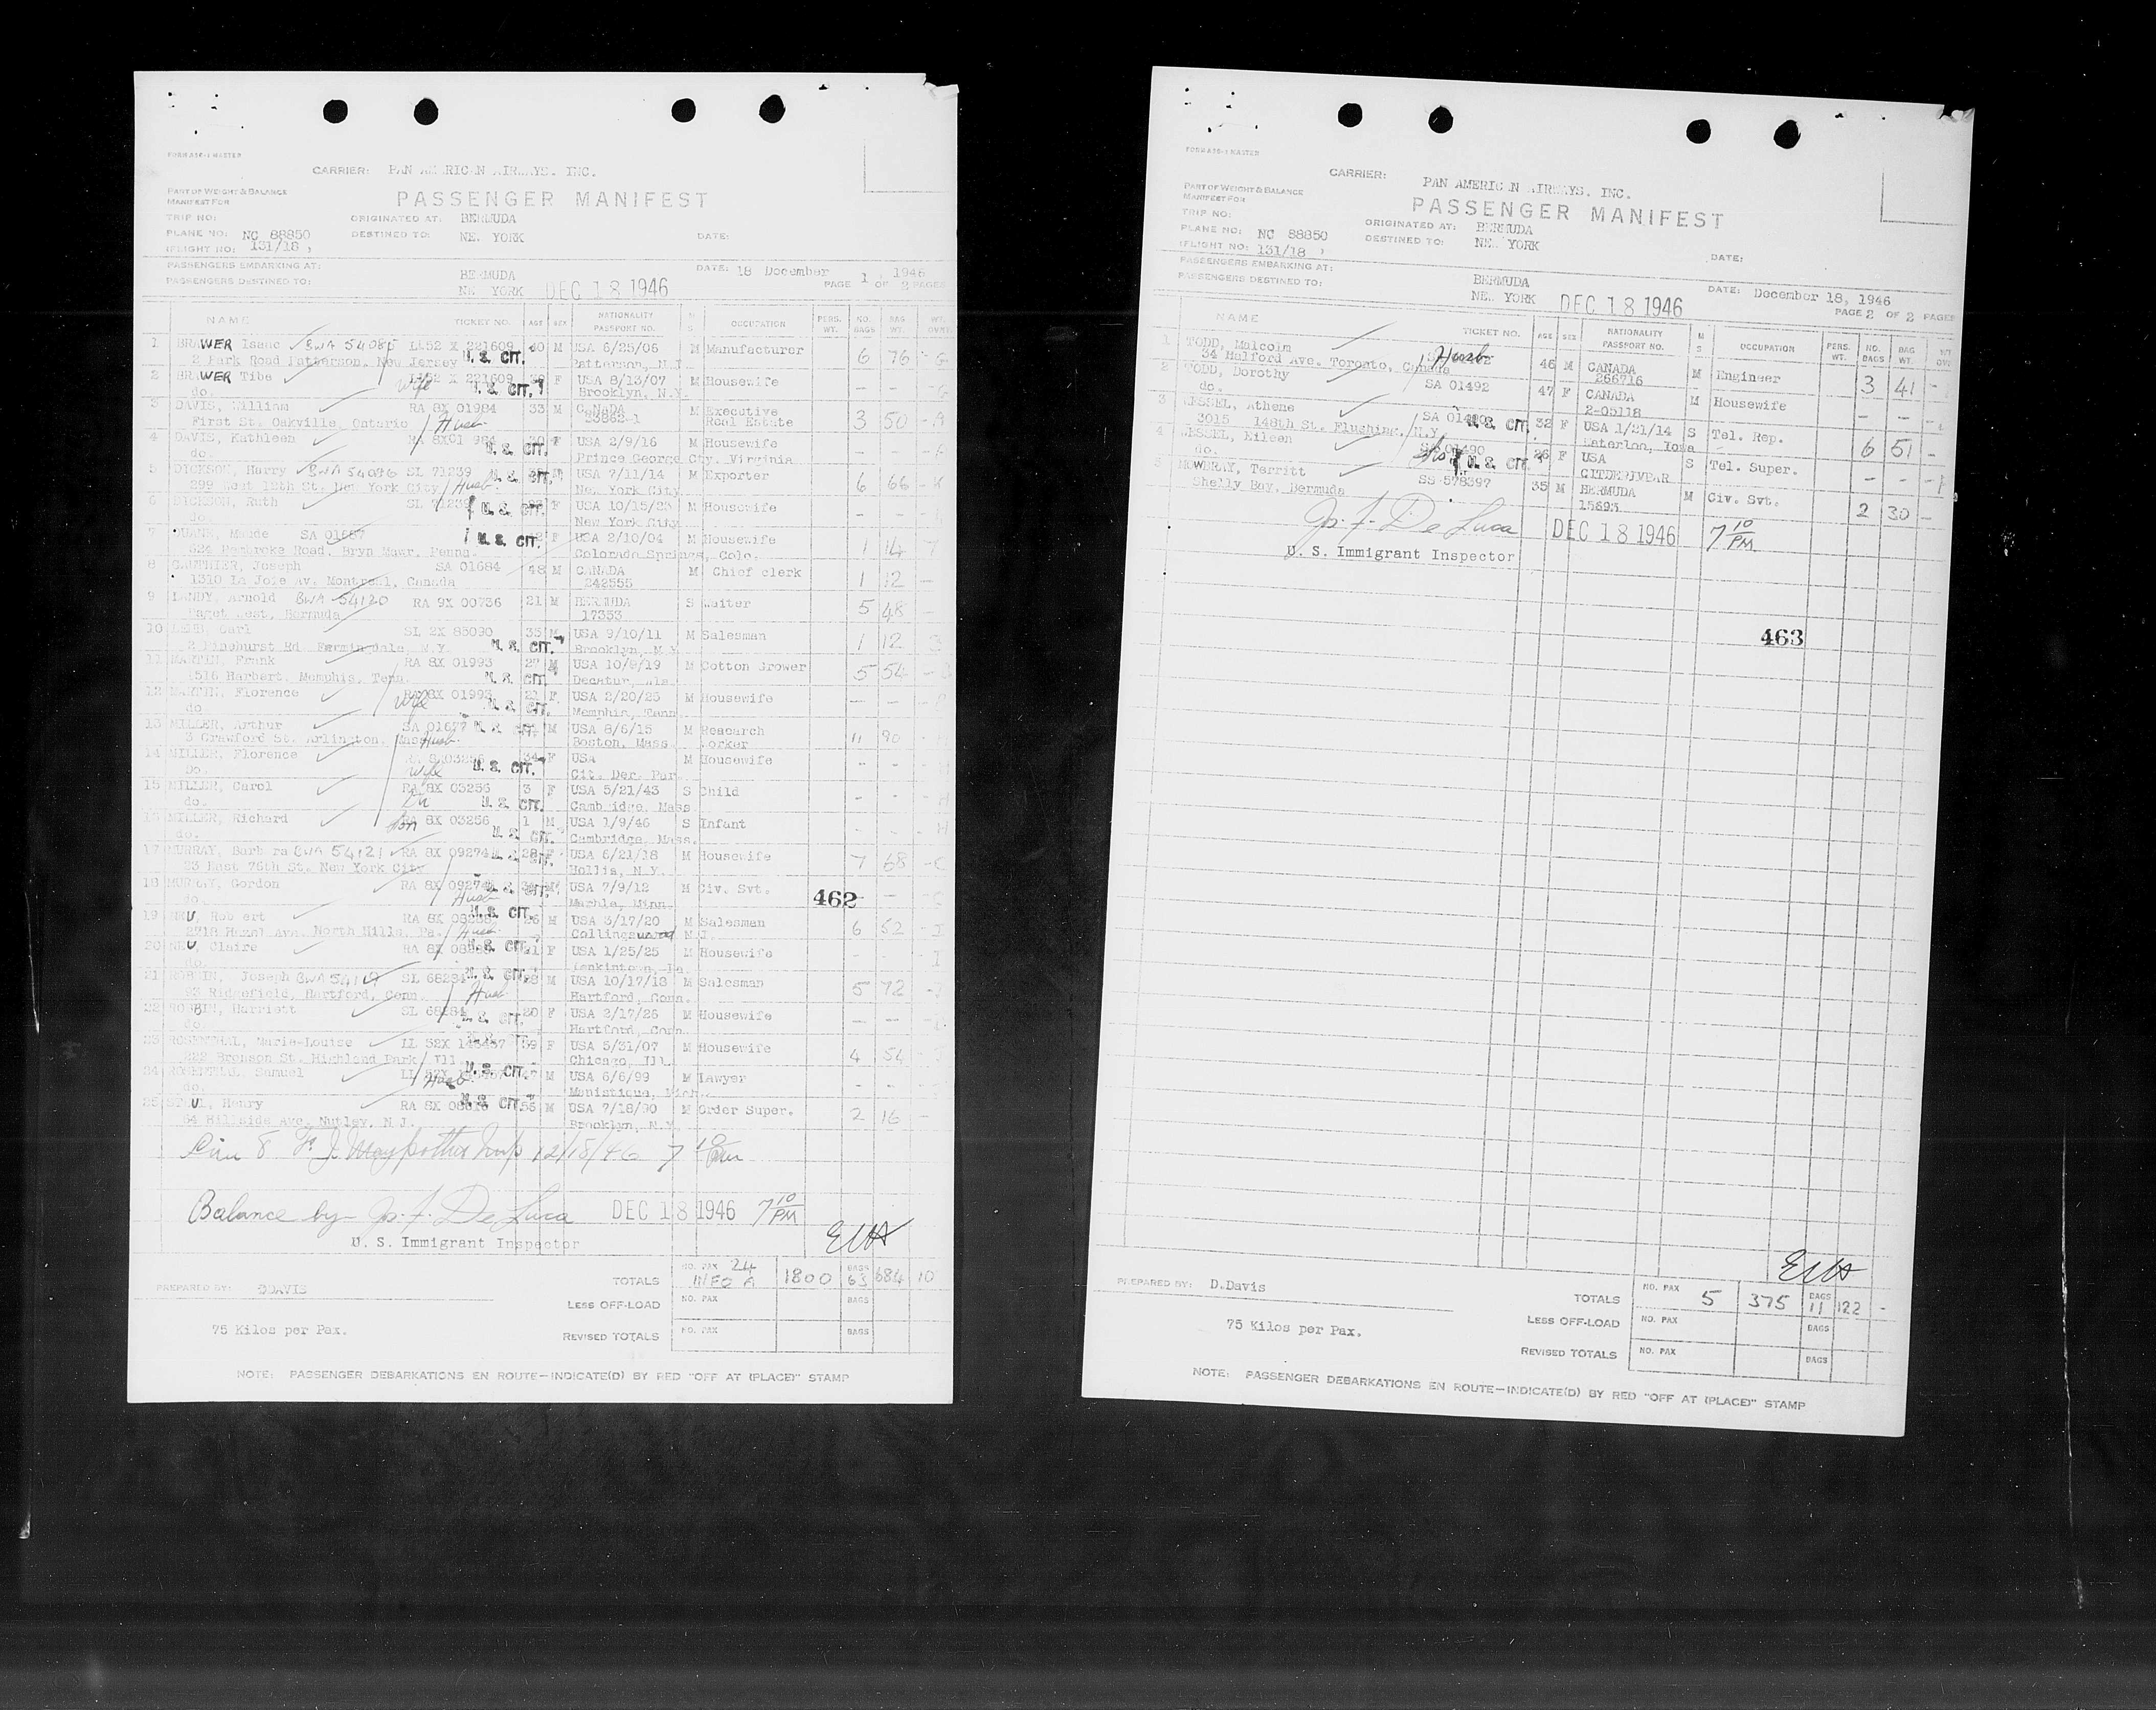 FORM A36-1 MASTER
CARRIER: PAN AMERICAN AIRWAYS, INC.
PART OF WEIGHT & BALANCE
MANIFEST FOR
PASSENGER MANIFEST
TRIP NO:
ORIGINATED AT: BERMUDA
PLANE NO: NC 88850
DESTINED TO: NEW YORK
DATE:
(FLIGHT NO: 131/18 )
PASSENGERS EMBARKING AT: BERMUDA
DATE: 18 December, 1946
PASSENGERS DESTINED TO: NEW YORK DEC 18 1946
PAGE 1 OF 2 PAGES
NAME TICKET NO. AGE SEX NATIONALITY PASSPORT NO. M S OCCUPATION PERS. WT. NO. BAGS BAG WT.
1 BRAWER Isaac BWA 54085 LL52 X 221609 40 M USA 6/25/06 M Manufacturer 6 76
2 Park Road Patterson, New Jersey U. S. CIT. Patterson, N.J.
2 BRAWER Tibe LL52 X 221609 F USA 8/13/07 M Housewife
do. Wife U. S. CIT. Brooklyn, N.Y.
3 DAVIS, William RA 8X 01984 33 M CANADA M Executive 3 50
First St. Oakville, Ontario Husb. 53862-1 Real Estate
4 DAVIS, Kathleen RA 8X01 984 30 F USA 2/9/16 M Housewife
do. U. S. CIT. Prince George Cty. Virginia
5 DICKSON, Harry BWA 54086 SL 71239 U. S. CIT. M USA 7/11/14 M Exporter 6 66
299 West 12th St. New York City Husb. New York City
6 DICKSON, Ruth SL 71239 U. S. CIT. F USA 10/15/23 M Housewife
do. New York City
7 DUANE, Maude SA 01687 U. S. CIT. F USA 2/10/04 M Housewife 1 14
524 Pembroke Road, Bryn Mawr, Penna. Colorado Springs, Colo.
8 GAUTHIER, Joseph SA 01684 48 M CANADA M Chief clerk 1 12
1310 La Joie Av. Montreal, Canada 242555
9 LANDY, Arnold BWA 54120 RA 9X 00736 21 M BERMUDA S Waiter 5 48
Paget West, Bermuda 17353
10 LEHR, Carl SL 2X 85090 35 M USA 9/10/11 M Salesman 1 12
2 Pinehurst Rd. Farmingdale, N.Y. U. S. CIT. Brooklyn, N.Y.
11 MARTIN, Frank RA 8X 01993 27 M USA 10/9/19 M Cotton Grower 5 54
1516 Harbert, Memphis, Tenn. U. S. CIT. Decatur, Ala.
12 MARTIN, Florence RA 8X 01993 21 F USA 2/20/25 M Housewife
do. Wife U. S. CIT. Memphis, Tenn.
13 MILLER, Arthur SA 01677 U. S. CIT. M USA 8/6/15 M Research 11 90
3 Crawford St. Arlington, Mass. Husb. Boston, Mass. Worker
14 MILLER, Florence 34 F USA M Housewife
Do. Wife U. S. CIT. Cit. Der. Par.
15 MILLER, Carol RA 8X 03256 3 F USA 5/21/43 S Child
do. U. S. CIT. Cambridge, Mass
16 MILLER, Richard RA 8X 03256 1 M USA 1/9/46 S Infant
do. Son U. S. CIT. Cambridge, Mass.
17 MURRAY, Barbara BWA 54121 RA 8X 09274 28 F USA 6/21/18 M Housewife 7 68
23 East 76th St. New York City Hollis, N.Y.
18 MURRAY, Gordon RA 8X 09274 M USA 7/9/12 M Civ. Svt. 462
do. Husb. Marble, Minn.
19 NEU, Robert RA 8X U. S. CIT. 26 M USA 3/17/20 M Salesman 6 52
2718 Hazel Ave. North Hills, Pa. Husb. Collingswood N.J.
20 NEU, Claire RA 8X U. S. CIT. 21 F USA 1/25/25 M Housewife
do. Jenkintown, Pa.
21 ROBBIN, Joseph BWA 54119 SL 68284 U. S. CIT. 28 M USA 10/17/18 M Salesman 5 72
93 Ridgefield, Hartford, Conn. Husb. Hartford, Conn.
22 ROBBIN, Harriett SL 68284 U. S. CIT. 20 F USA 2/17/26 M Housewife
do. Hartford, Conn.
23 ROSENTHAL, Marie-Louise LL 52X 39 F USA 5/31/07 M Housewife 4 54
222 Bronson St. Highland Park, Ill. Chicago, Ill.
24 Samuel LL 52X U. S. CIT. 47 M USA 6/6/99 M Lawyer
do. Husb. Manistique, Mich.
25 Henry RA 8X U. S. CIT. 56 M USA 7/18/90 M Order Super. 2 16
64 Hillside Ave. Nutley, N.J. Brooklyn, N.Y.
8 12/18/46 7
Balance by Jos. F. De Luca DEC 18 1946 7 10 PM
U. S. Immigrant Inspector
TOTALS NO. PAX 24 1800 BAGS 63 684 10
PREPARED BY: DDAVIS
LESS OFF-LOAD NO. PAX BAGS
75 Kilos per Pax.
REVISED TOTALS NO. PAX BAGS
NOTE: PASSENGER DEBARKATIONS EN ROUTE—INDICATE(D) BY RED "OFF AT (PLACE)" STAMP
FORM A36-1 MASTER
CARRIER: PAN AMERICAN AIRWAYS, INC.
PART OF WEIGHT & BALANCE
MANIFEST FOR
PASSENGER MANIFEST
TRIP NO:
ORIGINATED AT: BERMUDA
PLANE NO: NC 88850
DESTINED TO: NEW YORK
(FLIGHT NO: 131/18 )
DATE:
PASSENGERS EMBARKING AT: BERMUDA
DATE: December 18, 1946
PASSENGERS DESTINED TO: NEW YORK DEC 18 1946
PAGE 2 OF 2 PAGES
NAME TICKET NO. AGE SEX NATIONALITY PASSPORT NO. M S OCCUPATION PERS. WT. NO. BAGS BAG WT.
1 TODD, Malcolm Husb. 46 M CANADA M Engineer 3 41
34 Halford Ave. Toronto, Canada 266716
2 TODD, Dorothy SA 01492 47 F CANADA M Housewife
do. 2-05118
3 WESSEL, Athene SA 01490 U. S. CIT. 32 F USA 1/21/14 S Tel. Rep. 6 51
3015 148th St. Flushing, N.Y. Waterloo, Iowa
4 WESSEL, Eileen SA 01490 U. S. CIT. 26 F USA S Tel. Super.
do. CITDERIVPAR
5 MOWBRAY, Territt SS 578397 35 M BERMUDA M Civ. Svt. 2 30
Shelly Bay, Bermuda 15893
Jos. F. De Luca DEC 18 1946 7 10 PM
U. S. Immigrant Inspector
463
PREPARED BY: D.Davis
TOTALS NO. PAX 5 375 BAGS 11 122 -
LESS OFF-LOAD NO. PAX BAGS
75 Kilos per Pax.
REVISED TOTALS NO. PAX BAGS
NOTE: PASSENGER DEBARKATIONS EN ROUTE—INDICATE(D) BY RED "OFF AT (PLACE)" STAMP